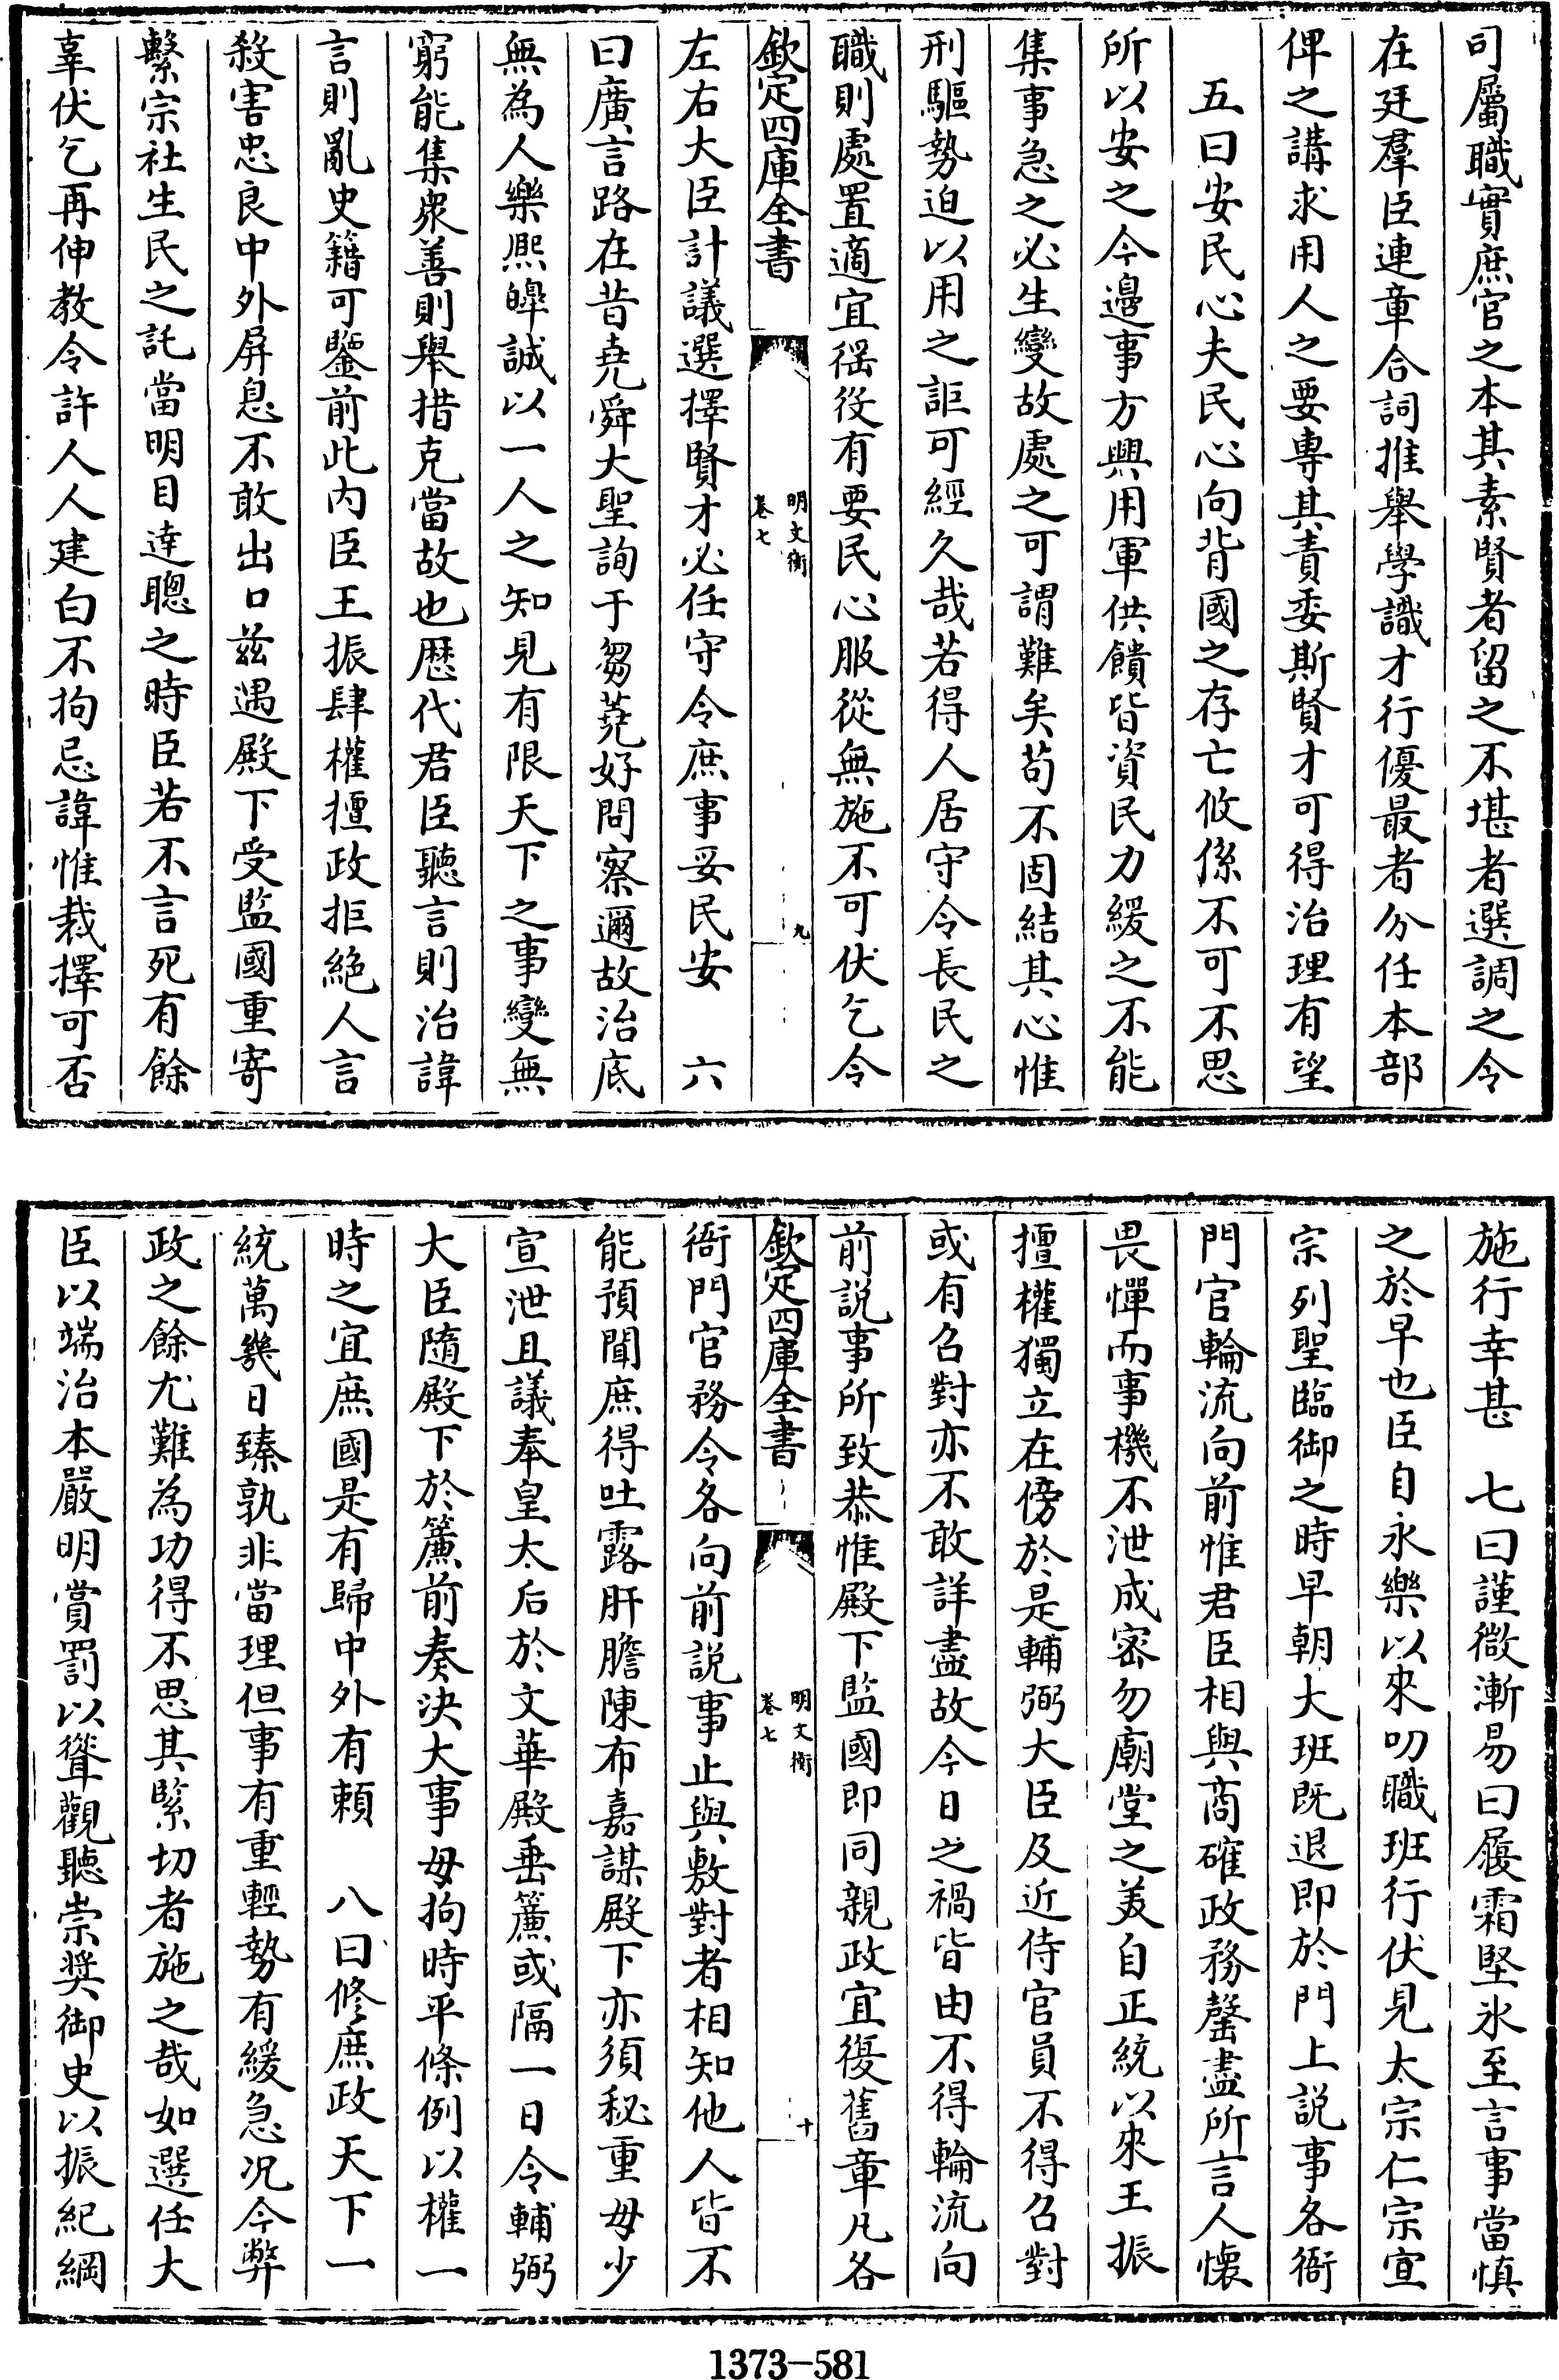 司屬職實庶官之本其素賢者留之不堪者選調之令
在廷羣臣連章合詞推舉學識才行優最者分任本部
俾之講求用人之要專其責委斯賢才可得治理有望
五曰安民心夫民心向背國之存亡攸係不可不思
所以安之今邊事方興用軍供饋皆資民力緩之不能
集事急之必生變故處之可謂難矣苟不固結其心惟
刑驅勢迫以用之詎可經久哉若得人居守令長民之
職則處置適宜徭役有要民心服從無施不可伏乞令
欽定四庫全書
明文衡
卷七
九
左右大臣計議選擇賢才必任守令庶事妥民安　六
曰廣言路在昔堯舜大聖詢于芻蕘好問察邇故治底
無為人樂熙皥誠以一人之知見有限天下之事變無
窮能集衆善則舉措克當故也歷代君臣聽言則治諱
言則亂史籍可鑒前此内臣王振肆權擅政拒絶人言
殺害忠良中外屏息不敢出口兹遇殿下受監國重寄
繫宗社生民之託當明目達聰之時臣若不言死有餘
辜伏乞再伸教令許人人建白不拘忌諱惟裁擇可否
施行幸甚　七曰謹微漸易曰履霜堅氷至言事當慎
之於早也臣自永樂以來叨職班行伏見太宗仁宗宣
宗列聖臨御之時早朝大班既退即於門上説事各衙
門官輪流向前惟君臣相與商確政務罄盡所言人懷
畏憚而事機不泄成密勿廟堂之美自正統以來王振
擅權獨立在傍於是輔弼大臣及近侍官員不得召對
或有召對亦不敢詳盡故今日之禍皆由不得輪流向
前説事所致恭惟殿下監國即同親政宜復舊章凡各
欽定四庫全書
明文衡
卷七
十
衙門官務令各向前説事止與敷對者相知他人皆不
能預聞庶得吐露肝膽陳布嘉謀殿下亦須秘重毋少
宣泄且議奉皇太后於文華殿垂簾或隔一日令輔弼
大臣隨殿下於簾前奏決大事毋拘時平條例以權一
時之宜庶國是有歸中外有賴　八曰修庶政天下一
統萬幾日臻孰非當理但事有重輕勢有緩急况今弊
政之餘尤難為功得不思其緊切者施之哉如選任大
臣以端治本嚴明賞罰以聳觀聽崇奬御史以振紀綱
1373—581